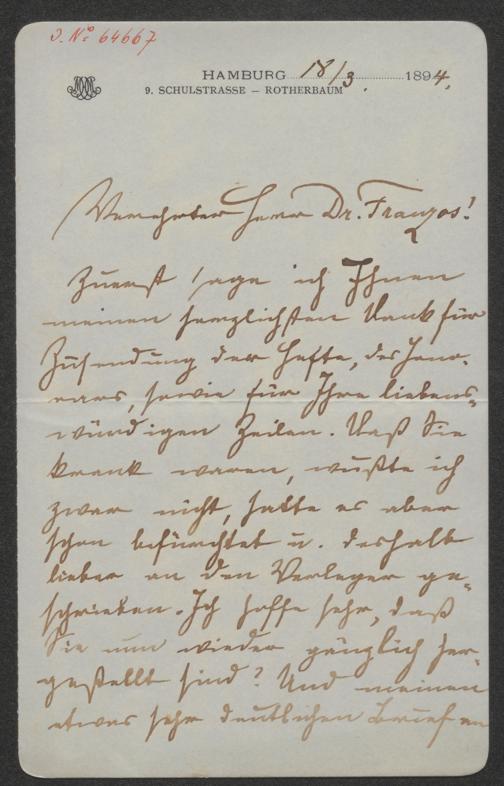 J. № 64667
HAMBURG 18/3. 1894.
9. SCHULSTRASSE – ROTHERBAUM
Verehrter Herr Dr. Franzos!
Zuerst sage ich Ihnen
meinen herzlichsten Dank für
Zusendung der Hefte, des Hono-
rars, sowie für Ihre liebens-
würdigen Zeilen. Daß Sie
krank waren, wußte ich
zwar nicht, hatte es aber
schon befürchtet u. deshalb
lieber an den Verleger ge-
schrieben. Ich hoffe sehr, daß
Sie nun wieder gänzlich her-
gestellt sind? Und meinen
etwas sehr deutlichen Brief an